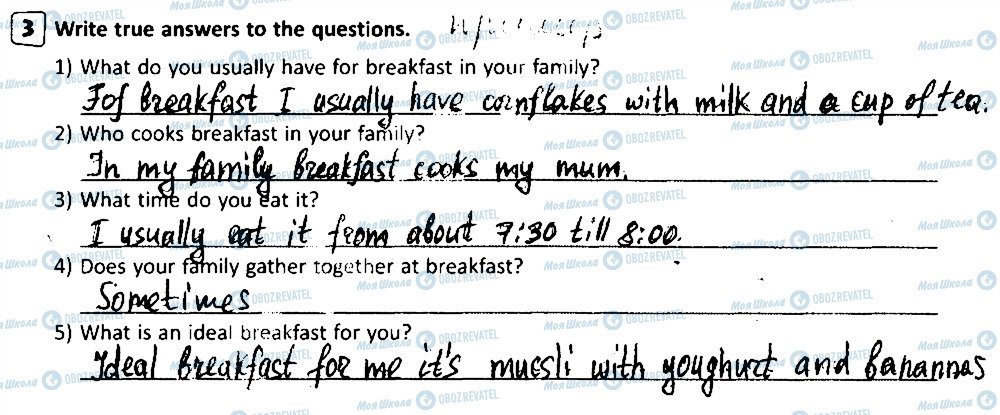 3 Write true answers to the questions.
1) What do you usually have for breakfast in your family?
Fof breakfast I usually have cornflakes with milk and a cup of tea.
2) Who cooks breakfast in your family?
In my family breakfast cooks my mum.
3) What time do you eat it?
I usually eat it from about 7:30 till 8:00.
4) Does your family gather together at breakfast?
Sometimes
5) What is an ideal breakfast for you?
Ideal breakfast for me it's muesli with youghurt and banannas